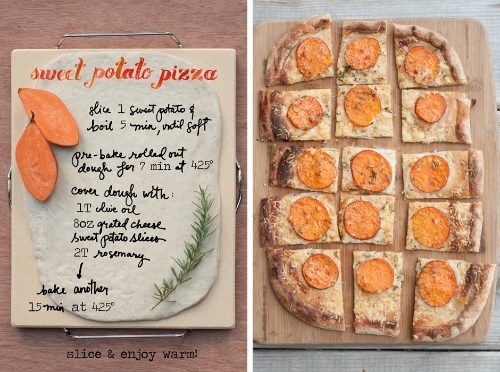 sweet potato pizza
slice 1 sweet potato &
boil 5 min, until soft
pre-bake rolled out
dough for 7 min at 425°
cover dough with:
1T olive oil
8oz grated cheese
sweet potato slices
2T rosemary
bake another
15 min at 425°
slice & enjoy warm!